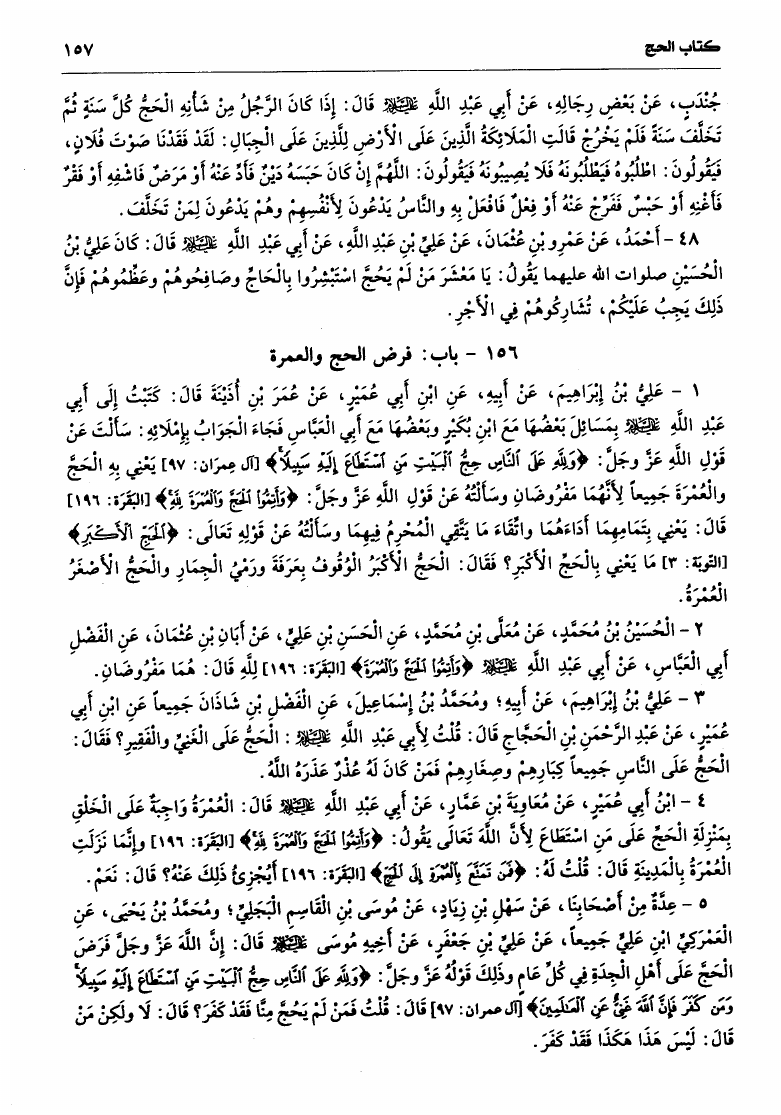 كتاب الحج ١٥٧
جُنْدَبٍ، عَنْ بَعْضِ رِجَالِهِ، عَنْ أَبِي عَبْدِ اللَّهِ عَلَيْهِ السَّلَامُ قَالَ: إِذَا كَانَ الرَّجُلُ مِنْ شَأْنِهِ الْحَجُّ كُلَّ سَنَةٍ ثُمَّ
تَخَلَّفَ سَنَةً فَلَمْ يَخْرُجْ قَالَتِ الْمَلَائِكَةُ الَّذِينَ عَلَى الْأَرْضِ لِلَّذِينَ عَلَى الْجِبَالِ: لَقَدْ فَقَدْنَا صَوْتَ فُلَانٍ،
فَيَقُولُونَ: اطْلُبُوهُ فَيَطْلُبُونَهُ فَلَا يُصِيبُونَهُ فَيَقُولُونَ: اللَّهُمَّ إِنْ كَانَ حَبَسَهُ دَيْنٌ فَأَدِّ عَنْهُ أَوْ مَرَضٌ فَاشْفِهِ أَوْ فَقْرٌ
فَأَغْنِهِ أَوْ حَبْسٌ فَفَرِّجْ عَنْهُ أَوْ فِعْلٌ فَافْعَلْ بِهِ والنَّاسُ يَدْعُونَ لِأَنْفُسِهِمْ وهُمْ يَدْعُونَ لِمَنْ تَخَلَّفَ.
٤٨ - أَحْمَدُ، عَنْ عَمْرِو بْنِ عُثْمَانَ، عَنْ عَلِيِّ بْنِ عَبْدِ اللَّهِ، عَنْ أَبِي عَبْدِ اللَّهِ عَلَيْهِ السَّلَامُ قَالَ: كَانَ عَلِيُّ بْنُ
الْحُسَيْنِ صلوات الله عليهما يَقُولُ: يَا مَعْشَرَ مَنْ لَمْ يَحُجَّ اسْتَبْشِرُوا بِالْحَاجِّ وصَافِحُوهُمْ وعَظِّمُوهُمْ فَإِنَّ
ذَلِكَ يَجِبُ عَلَيْكُمْ، تُشَارِكُوهُمْ فِي الْأَجْرِ.
١٥٦ - باب: فرض الحج والعمرة
١ - عَلِيُّ بْنُ إِبْرَاهِيمَ، عَنْ أَبِيهِ، عَنِ ابْنِ أَبِي عُمَيْرٍ، عَنْ عُمَرَ بْنِ أُذَيْنَةَ قَالَ: كَتَبْتُ إِلَى أَبِي
عَبْدِ اللَّهِ عَلَيْهِ السَّلَامُ بِمَسَائِلَ بَعْضُهَا مَعَ ابْنِ بُكَيْرٍ وبَعْضُهَا مَعَ أَبِي الْعَبَّاسِ فَجَاءَ الْجَوَابُ بِإِمْلَائِهِ: سَأَلْتَ عَنْ
قَوْلِ اللَّهِ عَزَّ وجَلَّ: ﴿وَلِلَّهِ عَلَى ٱلنَّاسِ حِجُّ ٱلْبَيْتِ مَنِ ٱسْتَطَاعَ إِلَيْهِ سَبِيلًا﴾ [آل عِمرَان: ٩٧] يَعْنِي بِهِ الْحَجَّ
والْعُمْرَةَ جَمِيعاً لِأَنَّهُمَا مَفْرُوضَانِ وسَأَلْتُهُ عَنْ قَوْلِ اللَّهِ عَزَّ وجَلَّ: ﴿وَأَتِمُّوا ٱلْحَجَّ وَٱلْعُمْرَةَ لِلَّهِ﴾ [البَقَرَة: ١٩٦]
قَالَ: يَعْنِي بِتَمَامِهِمَا أَدَاءَهُمَا واتِّقَاءَ مَا يَتَّقِي الْمُحْرِمُ فِيهِمَا وسَأَلْتُهُ عَنْ قَوْلِهِ تَعَالَى: ﴿ٱلْحَجِّ ٱلْأَكْبَرِ﴾
[التّوبَة: ٣] مَا يَعْنِي بِالْحَجِّ الْأَكْبَرِ؟ فَقَالَ: الْحَجُّ الْأَكْبَرُ الْوُقُوفُ بِعَرَفَةَ ورَمْيُ الْجِمَارِ والْحَجُّ الْأَصْغَرُ
الْعُمْرَةُ.
٢ - الْحُسَيْنُ بْنُ مُحَمَّدٍ، عَنْ مُعَلَّى بْنِ مُحَمَّدٍ، عَنِ الْحَسَنِ بْنِ عَلِيٍّ، عَنْ أَبَانِ بْنِ عُثْمَانَ، عَنِ الْفَضْلِ
أَبِي الْعَبَّاسِ، عَنْ أَبِي عَبْدِ اللَّهِ عَلَيْهِ السَّلَامُ ﴿وَأَتِمُّوا ٱلْحَجَّ وَٱلْعُمْرَةَ﴾ [البَقَرَة: ١٩٦] لِلَّهِ قَالَ: هُمَا مَفْرُوضَانِ.
٣ - عَلِيُّ بْنُ إِبْرَاهِيمَ، عَنْ أَبِيهِ؛ ومُحَمَّدُ بْنُ إِسْمَاعِيلَ، عَنِ الْفَضْلِ بْنِ شَاذَانَ جَمِيعاً عَنِ ابْنِ أَبِي
عُمَيْرٍ، عَنْ عَبْدِ الرَّحْمَنِ بْنِ الْحَجَّاجِ قَالَ: قُلْتُ لِأَبِي عَبْدِ اللَّهِ عَلَيْهِ السَّلَامُ: الْحَجُّ عَلَى الْغَنِيِّ والْفَقِيرِ؟ فَقَالَ:
الْحَجُّ عَلَى النَّاسِ جَمِيعاً كِبَارِهِمْ وصِغَارِهِمْ فَمَنْ كَانَ لَهُ عُذْرٌ عَذَرَهُ اللَّهُ.
٤ - ابْنُ أَبِي عُمَيْرٍ، عَنْ مُعَاوِيَةَ بْنِ عَمَّارٍ، عَنْ أَبِي عَبْدِ اللَّهِ عَلَيْهِ السَّلَامُ قَالَ: الْعُمْرَةُ وَاجِبَةٌ عَلَى الْخَلْقِ
بِمَنْزِلَةِ الْحَجِّ عَلَى مَنِ اسْتَطَاعَ لِأَنَّ اللَّهَ تَعَالَى يَقُولُ: ﴿وَأَتِمُّوا ٱلْحَجَّ وَٱلْعُمْرَةَ لِلَّهِ﴾ [البَقَرَة: ١٩٦] وإِنَّمَا نَزَلَتِ
الْعُمْرَةُ بِالْمَدِينَةِ قَالَ: قُلْتُ لَهُ: ﴿فَمَن تَمَتَّعَ بِٱلْعُمْرَةِ إِلَى ٱلْحَجِّ﴾ [البَقَرَة: ١٩٦] أَيُجْزِئُ ذَلِكَ عَنْهُ؟ قَالَ: نَعَمْ.
٥ - عِدَّةٌ مِنْ أَصْحَابِنَا، عَنْ سَهْلِ بْنِ زِيَادٍ، عَنْ مُوسَى بْنِ الْقَاسِمِ الْبَجَلِيِّ؛ ومُحَمَّدُ بْنُ يَحْيَى، عَنِ
الْعَمْرَكِيِّ ابْنِ عَلِيٍّ جَمِيعاً، عَنْ عَلِيِّ بْنِ جَعْفَرٍ، عَنْ أَخِيهِ مُوسَى عَلَيْهِ السَّلَامُ قَالَ: إِنَّ اللَّهَ عَزَّ وجَلَّ فَرَضَ
الْحَجَّ عَلَى أَهْلِ الْجِدَةِ فِي كُلِّ عَامٍ وذَلِكَ قَوْلُهُ عَزَّ وجَلَّ: ﴿وَلِلَّهِ عَلَى ٱلنَّاسِ حِجُّ ٱلْبَيْتِ مَنِ ٱسْتَطَاعَ إِلَيْهِ سَبِيلًا
وَمَن كَفَرَ فَإِنَّ ٱللَّهَ غَنِيٌّ عَنِ ٱلْعَٰلَمِينَ﴾ [آل عمران: ٩٧] قَالَ: قُلْتُ فَمَنْ لَمْ يَحُجَّ مِنَّا فَقَدْ كَفَرَ؟ قَالَ: لَا ولَكِنْ مَنْ
قَالَ: لَيْسَ هَذَا هَكَذَا فَقَدْ كَفَرَ.